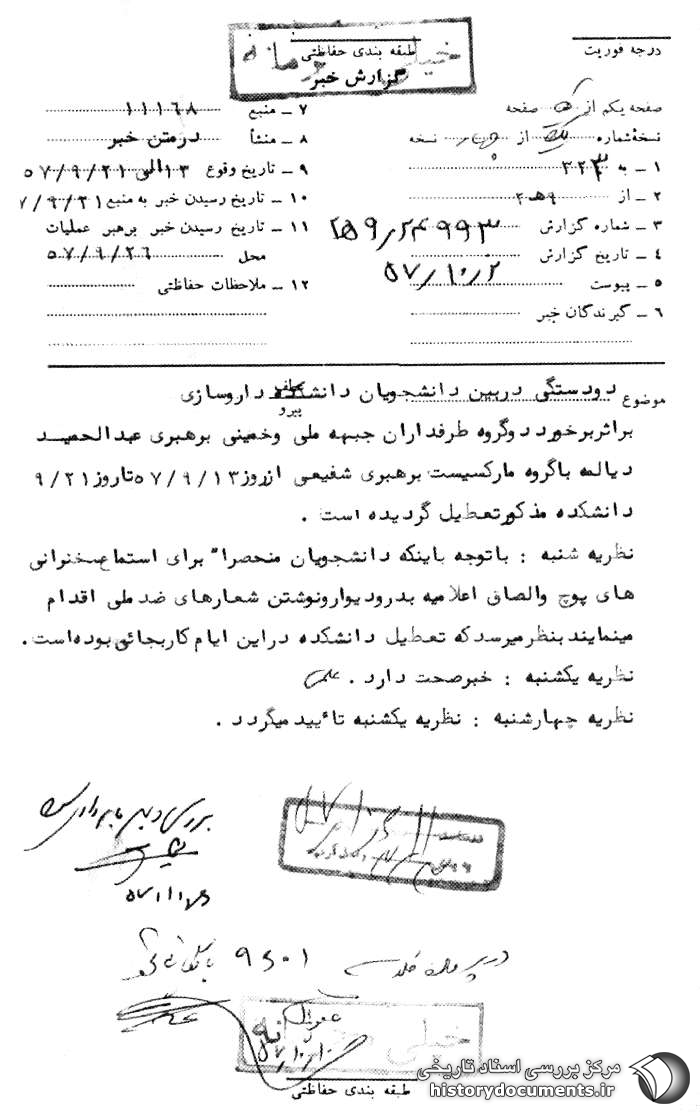 درجه فوریت
طبقه بندی حفاظتی
خیلی محرمانه
گزارش خبر
صفحه یکم از صفحه
نسخهٔ شماره از چهار نسخه
۱ ـ به ۳۲۳
۲ ـ از ۹ هـ ۲
۳ ـ شماره گزارش
۴ ـ تاریخ گزارش ۵۷/۱۰/۲
۵ ـ پیوست
۶ ـ گیرندگان خبر
۷ ـ منبع ۱۱۱۶۸
۸ ـ منشأ درمتن خبر
۹ ـ تاریخ وقوع ۱۳ الی ۵۷/۹/۲۱
۱۰ ـ تاریخ رسیدن خبر به منبع ۷/۹/۲۱
۱۱ ـ تاریخ رسیدن خبر برهبر عملیات
محل ۵۷/۹/۲۶
۱۲ ـ ملاحظات حفاظتی
موضوع دودستگی دربین دانشجویان دانشکده داروسازی
پیرو
براثربرخورد دوگروه طرفداران جبهه ملی وخمینی برهبری عبدالحمید
دیالمه باگروه مارکسیست برهبری شفیعی ازروز ۵۷/۹/۱۳ تاروز ۹/۲۱
دانشکده مذکورتعطیل گردیده است .
نظریه شنبه : باتوجه باینکه دانشجویان منحصرا" برای استماع سخنرانی
های پوچ والصاق اعلامیه بدرودیوارونوشتن شعارهای ضدملی اقدام
مینمایند بنظرمیرسدکه تعطیل دانشکده دراین ایام کاربجائی بوده است.
نظریه یکشنبه : خبرصحت دارد .
نظریه چهارشنبه : نظریه یکشنبه تائید میگردد .
در پرونده کلاسه ۹۵۰۱ بایگانی شود
خیلی محرمانه
طبقه بندی حفاظتی
مرکز بررسی اسناد تاریخی
historydocuments.ir